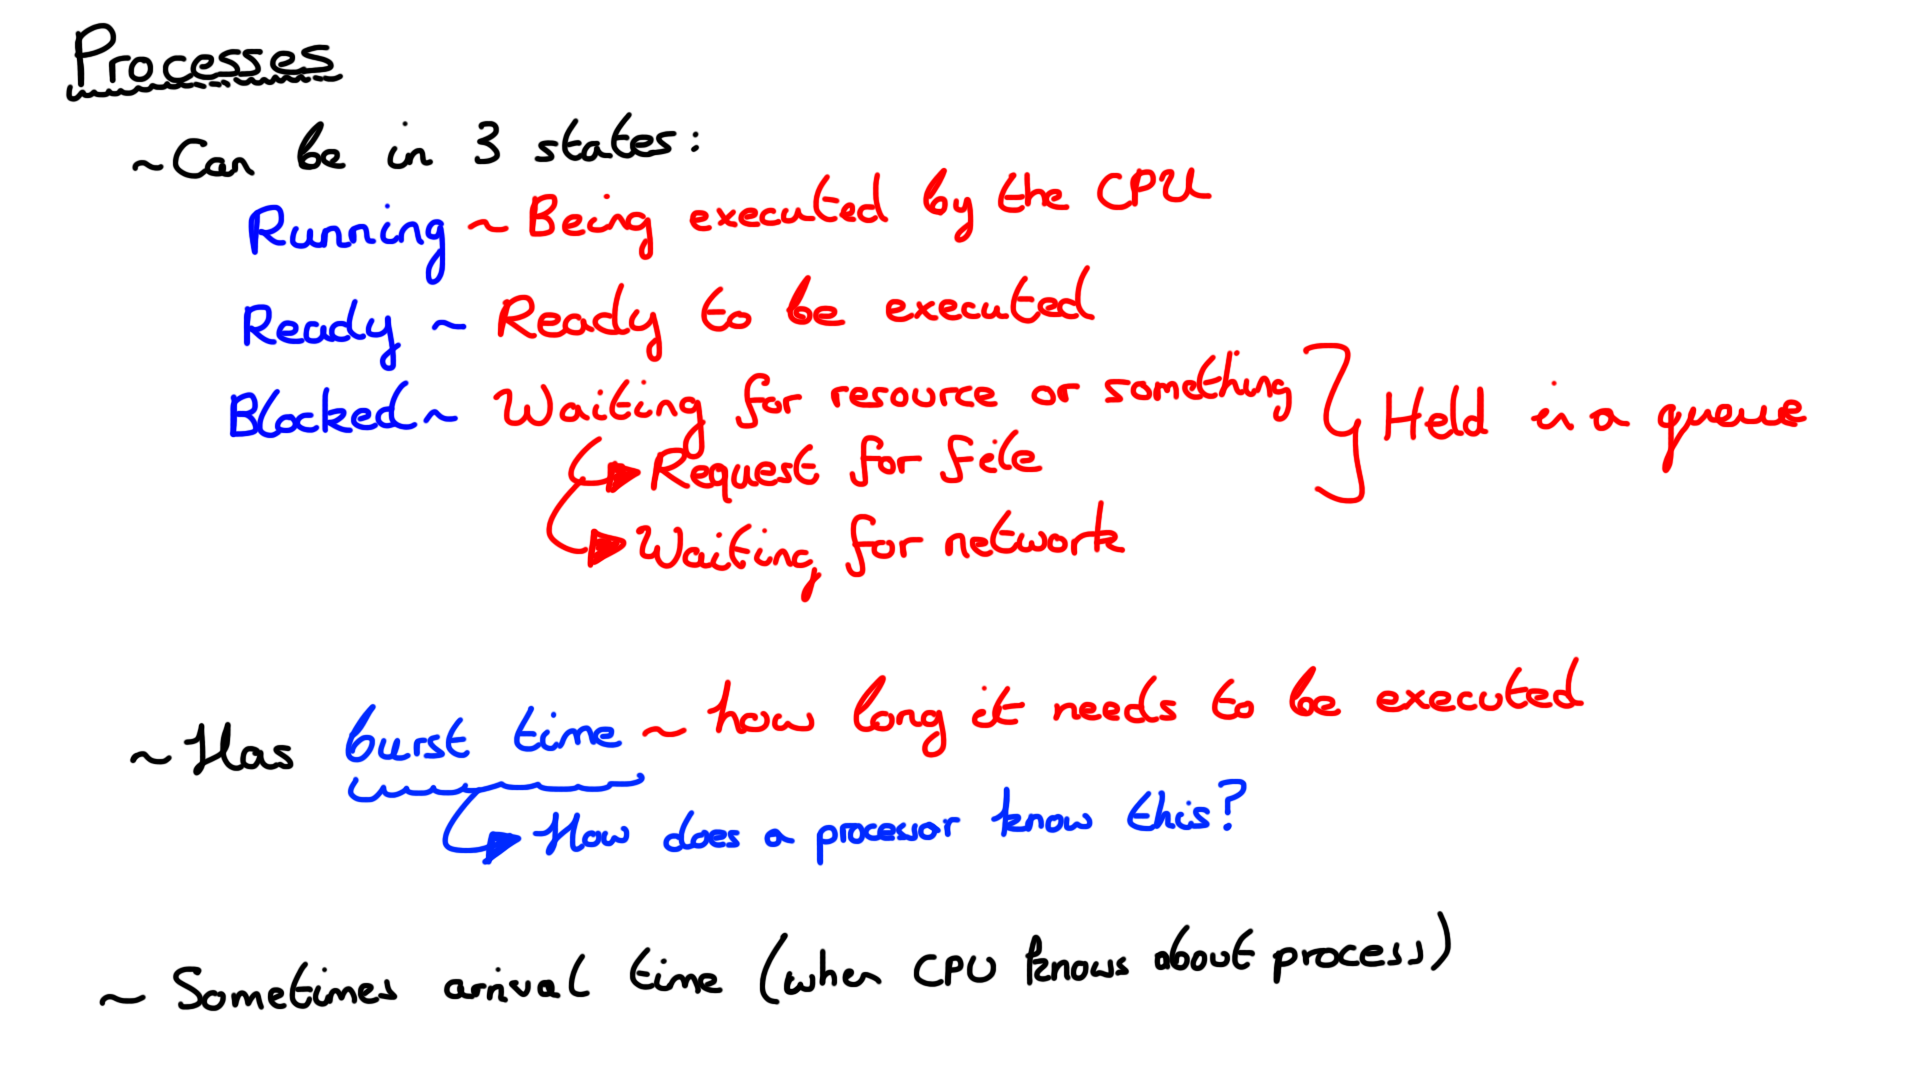 Processes
~Can be in 3 states:
Running ~ Being executed by the CPU
Ready ~ Ready to be executed
Blocked ~ Waiting for resource or something } Held in a queue
Request for file
Waiting for network
~Has burst time ~ how long it needs to be executed
How does a processor know this?
~ Sometimes arrival time (when CPU knows about process)